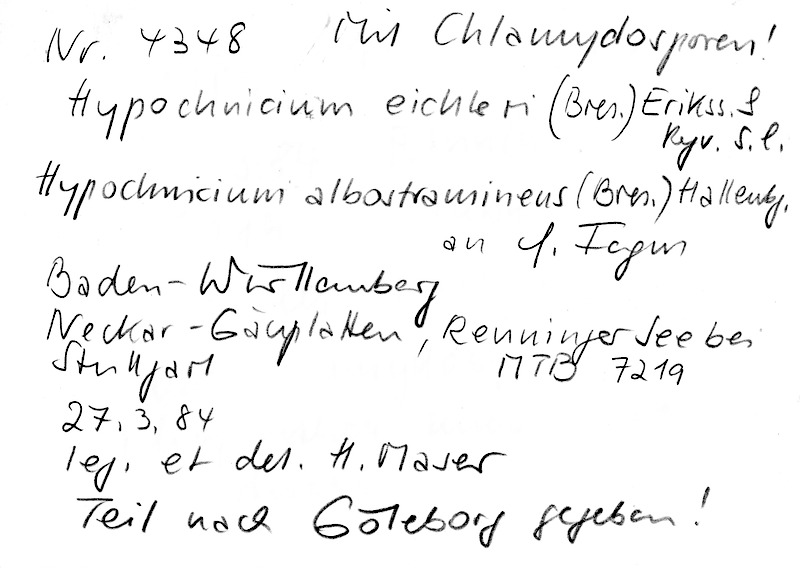 Nr. 4348 Mit Chlamydosporen!
Hypochnicium eichleri (Bres.) Erikss. &
Ryv. s.l.
Hypochnicium albostramineus (Bres.) Hallenbg.
an cf. Fagus
Baden-Württemberg
Neckar-Gäuplatten, Renninger See bei
Stuttgart MTB 7219
27.3.84
leg. et det. H. Maser
Teil nach Göteborg gegeben!